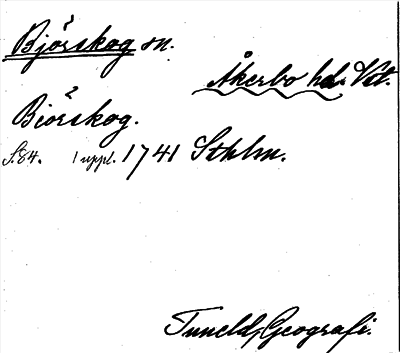 Björskog sn.
Åkerbo hd. Vst.
Biörskog.
S. 84. 1 uppl. 1741 Sthlm.
Tuneld, Geografi.